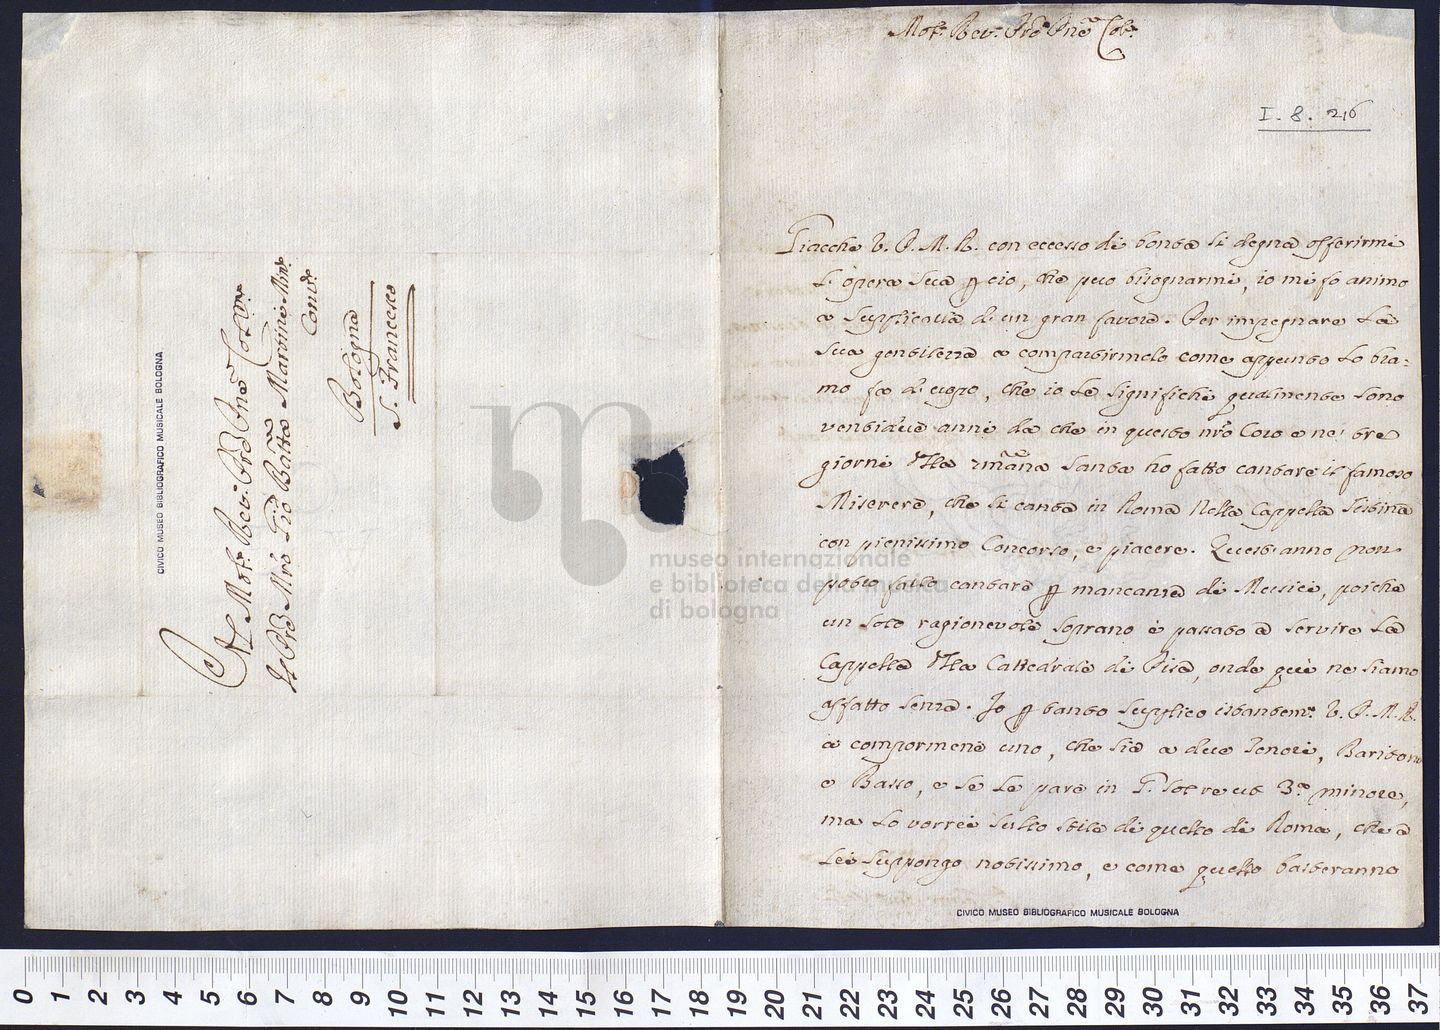 Al Mol: Rev: Prẽ Pñe Col:mo
Il Prẽ Mrõ Gio Batta Martini Min:
Conv:
Bologna
S. Francesco
CIVICO MUSEO BIBLIOGRAFICO MUSICALE BOLOGNA
Mol: Rev: Prẽ Pñe Col:
I. 8. 216
Giacche V. P. M. R. con eccesso di bontà si degna offerirmi
l'opera sua p ciò, che può bisognarmi, io mi fo animo
a supplicarla di un gran favore. Per impegnare la
sua gentilezza a compartirmelo come appunto lo bra=
mo fa di uopo, che io le significhi qualmente sono
ventidue anni da che in questo nrõ Coro e ne' tre
giorni della 7mãna santa ho fatto cantare il famoso
Miserere, che si canta in Roma nella Cappella Sistina
con pienissimo concorso, e piacere. Quest'anno non
potrò farlo cantare p mancanza di Musici, poiche
un solo ragionevole soprano è passato a servire la
Cappella della Cattedrale di Pisa, onde qui ne siamo
affatto senza. Io p tanto supplico istantem: V. P. M. R.
a compormene uno, che sia a due Tenori, Baritono
e Basso, e se le pare in G. sol re ut 3.a minore,
ma lo vorrei sullo stile di quello di Roma, che a
Lei suppongo notissimo, e come quello basteranno
CIVICO MUSEO BIBLIOGRAFICO MUSICALE BOLOGNA
museo internazionale
e biblioteca della musica
di bologna
0 1 2 3 4 5 6 7 8 9 10 11 12 13 14 15 16 17 18 19 20 21 22 23 24 25 26 27 28 29 30 31 32 33 34 35 36 37